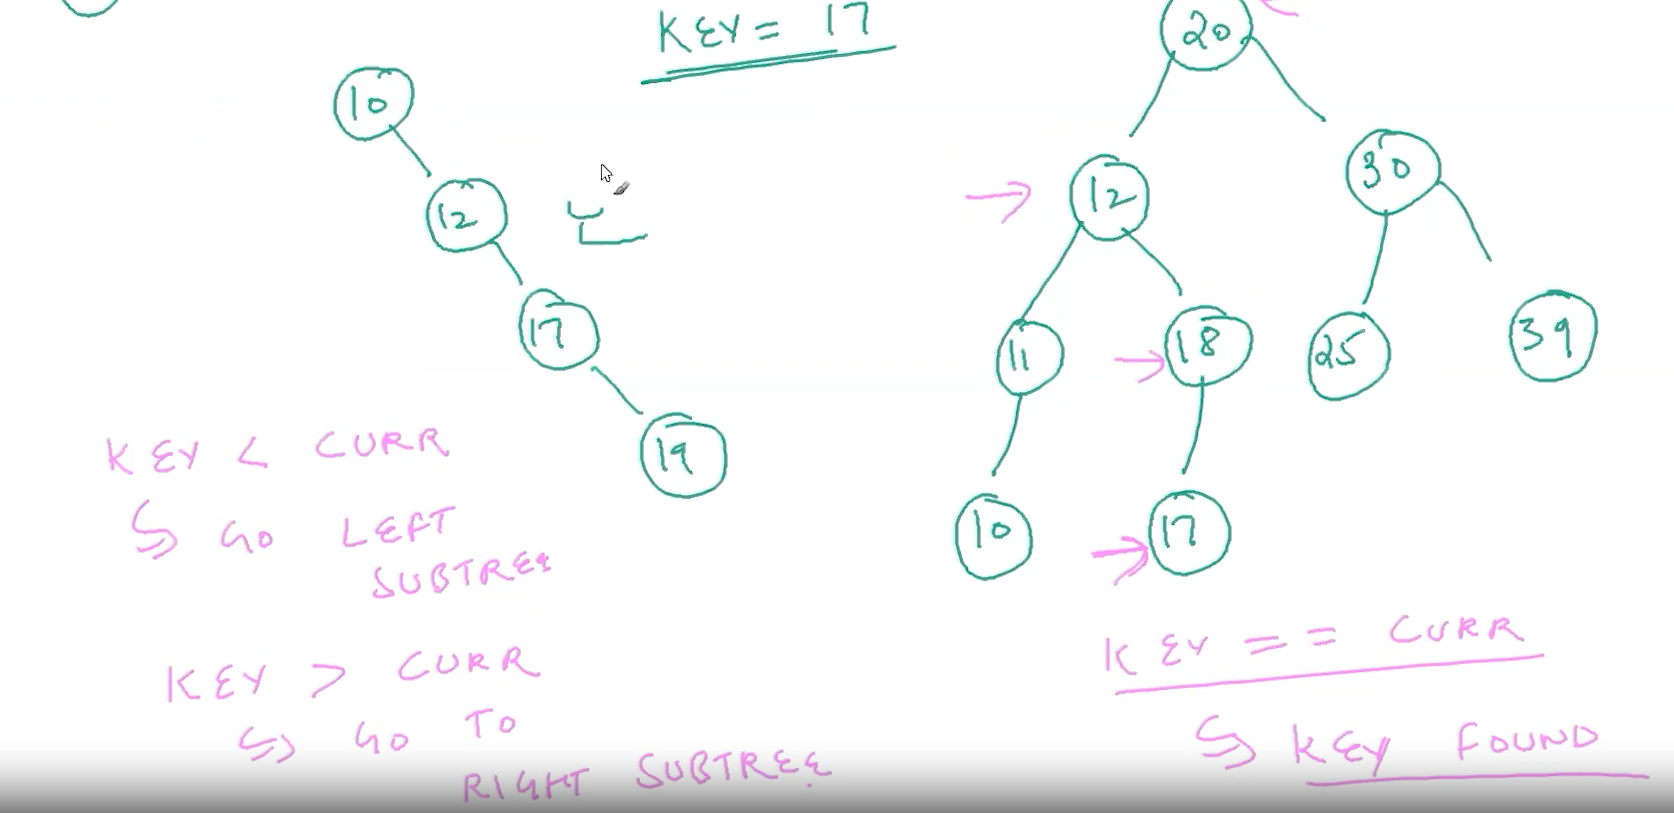 KEY = 17
20
10
30
12
12
17
11
18
25
39
19
10
17
KEY < CURR
GO LEFT
SUBTREE
KEY > CURR
GO TO
RIGHT SUBTREE
KEY == CURR
KEY FOUND